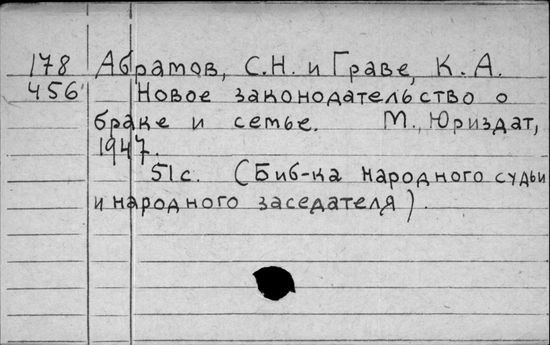 178 Абрамов, С.Н. и Граве, К.А.
456 Новое законодательство о
браке и семье. М., Юриздат,
1947.
51с. (Биб-ка народного судьи
и народного заседателя).